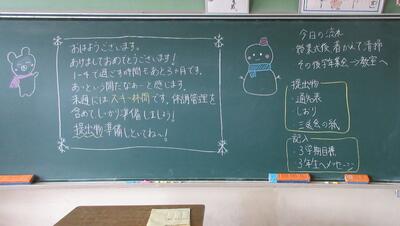 おはようございます。
あけましておめでとうございます!
1-4で過ごす時間もあと3ヶ月です。
あっという間だなぁーと感じます。
来週にはスキー林間です。体調管理を
含めてしっかり準備しましょう!
提出物準備しといてね〜!
今日の流れ
始業式後 着がえて清掃
その後学年集会→教室へ
提出物
・通知表
・しおり
・三送会の紙
記入
・3学期目標
・3年生へメッセージ